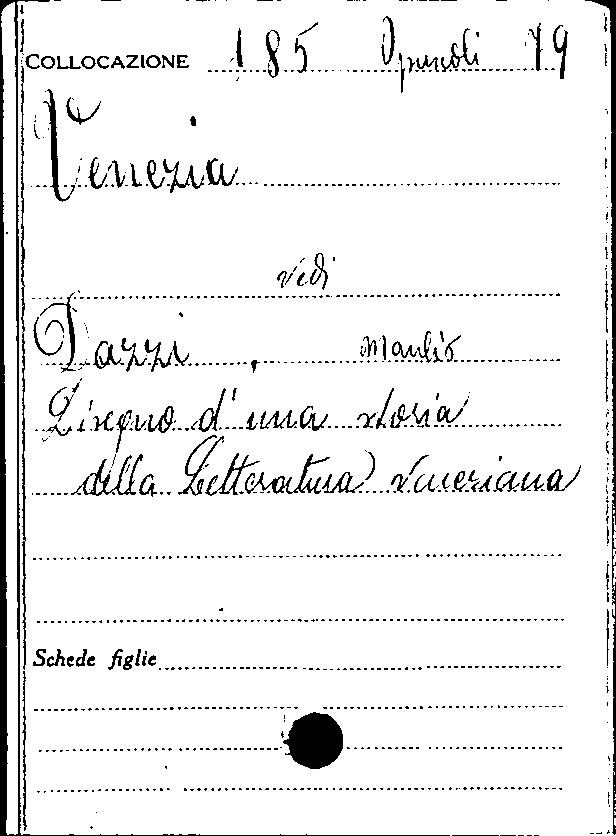 COLLOCAZIONE 185 Opuscoli 79
Venezia
vedi
Dazzi, Manlio
Disegno d'una storia
della Letteratura Veneziana
Schede figlie